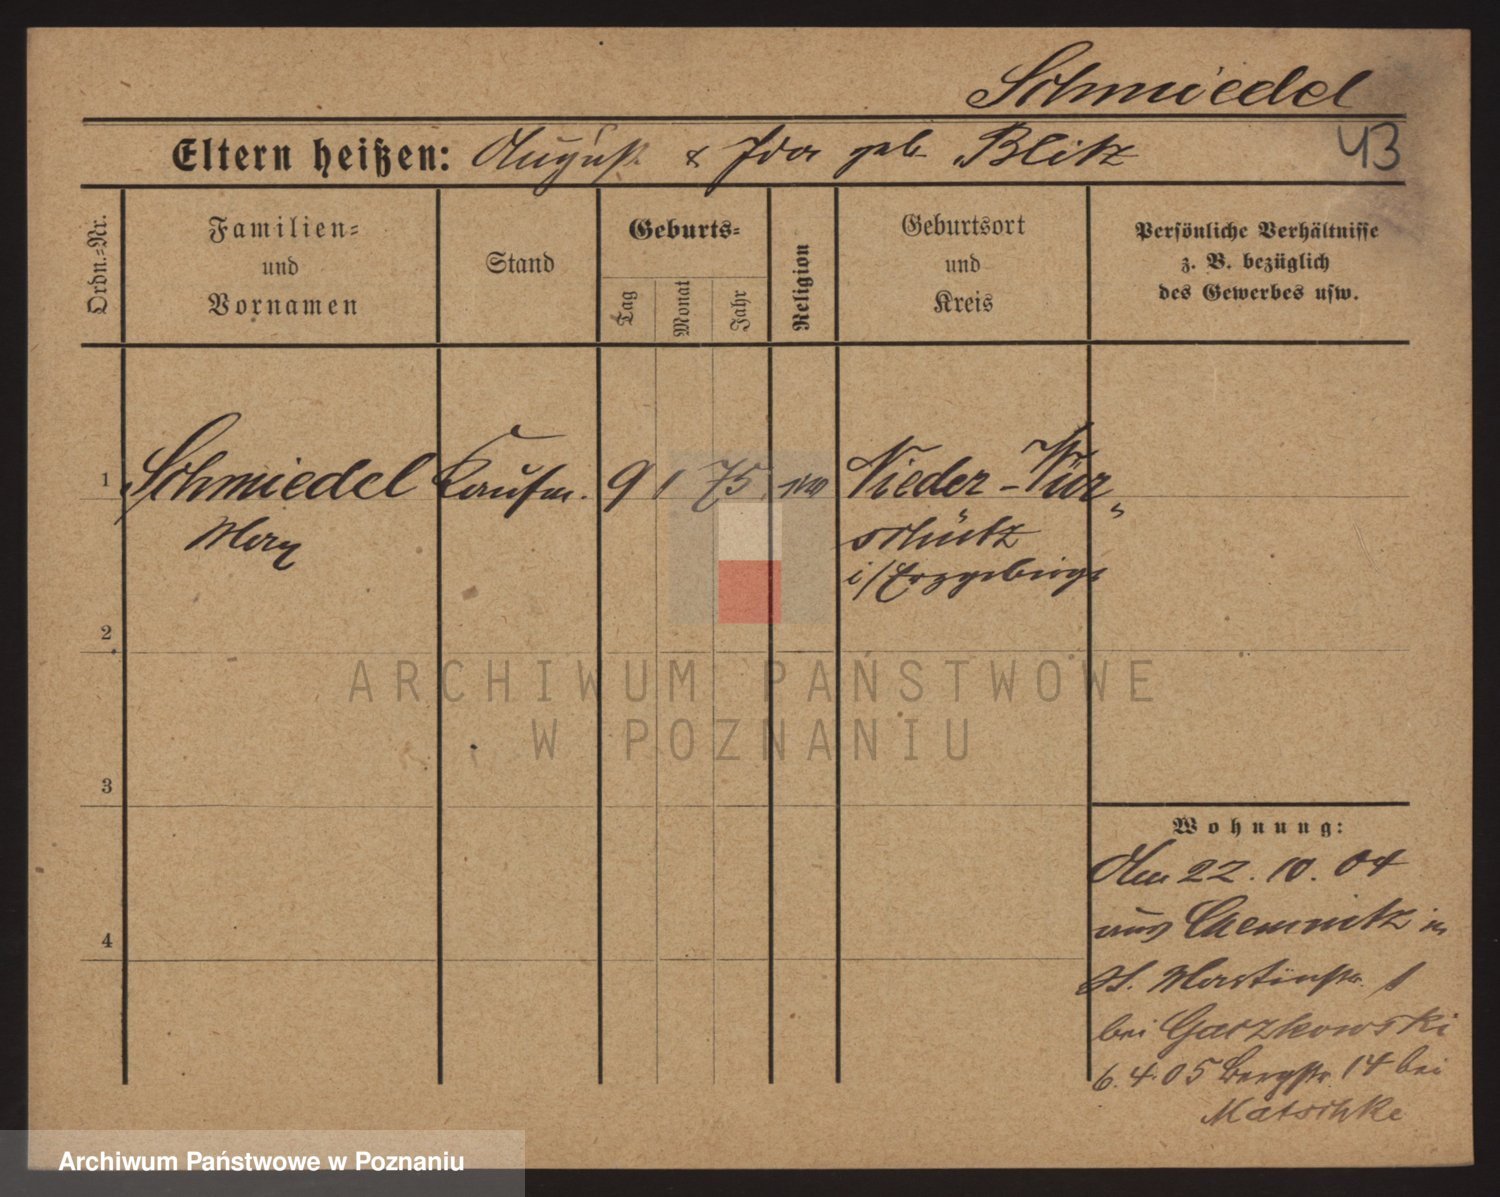 Schmiedel
43
Eltern heißen: August & Ida geb Blitz
Ordn.-Nr.
Familien=
und
Vornamen
Stand
Geburts=
Tag
Monat
Jahr
Religion
Geburtsort
und
Kreis
Persönliche Verhältnisse
z. B. bezüglich
des Gewerbes usw.
1 Schmiedel Kaufm. 9 1 75 Nieder-Wür„
Max schütz
i/Erzgebirge
2
3
4
Wohnung:
Am 22. 10. 04
aus Chemnitz in
St. Martinstr. 1
bei
6. 4. 05 Bergstr. 14 bei
Matschke
ARCHIWUM PAŃSTWOWE
W POZNANIU
Archiwum Państwowe w Poznaniu